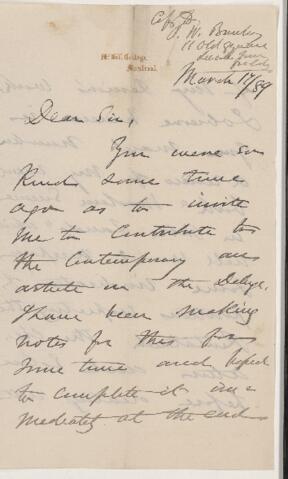 c/o D.
J. W.
11 Old Square
McGill College,
Montreal.
March 17/89
Dear Sir,
You were so
kind some time
ago as to invite
me to contribute to
the Contemporary an
article on the Deluge.
I have been making
notes for this for
some time and hoped
to complete it im=
mediately at the end